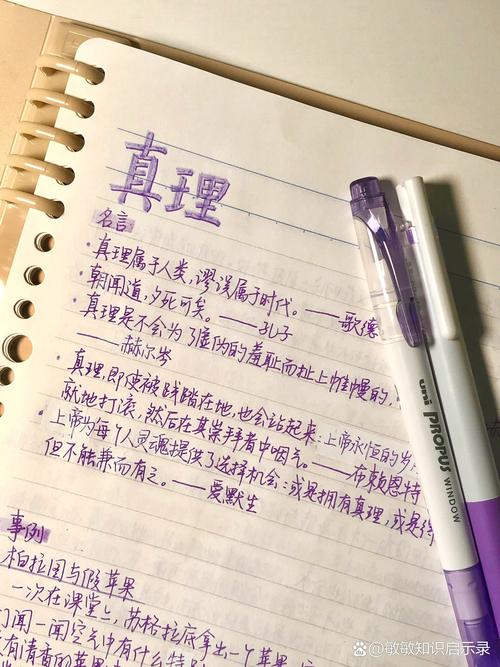 真理
名言
·真理属于人类,谬误属于时代。——歌德
·朝闻道,夕死可矣。——孔子
·真理是不会为了虚伪的羞耻而扯上帷幔的,
——赫尔岑
·真理,即使被践踏在地,也会站起来:上帝永恒的岁月
就地打滚,然后在其崇拜者中咽气。——布赖恩特
·上帝为每个人灵魂提供了选择机会:或是拥有真理,或是得
但不能兼而有之。——爱默生
事例
柏拉图与假苹果
一次在课堂上,苏格拉底拿出一个苹果
门闻一闻空气中有什么特
有清香的苹果
uni PROPUS WINDOW
敏敏知识启示录